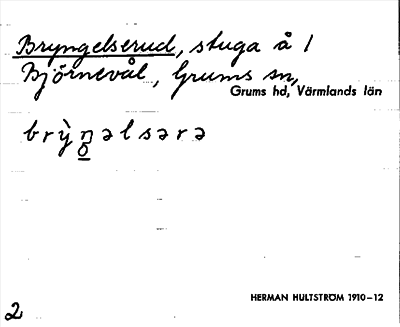 Bryngelserud, stuga å 1
Björnevål, Grums sn,
Grums hd, Värmlands län
brỳŋəlsərə
o
HERMAN HULTSTRÖM 1910–12
2